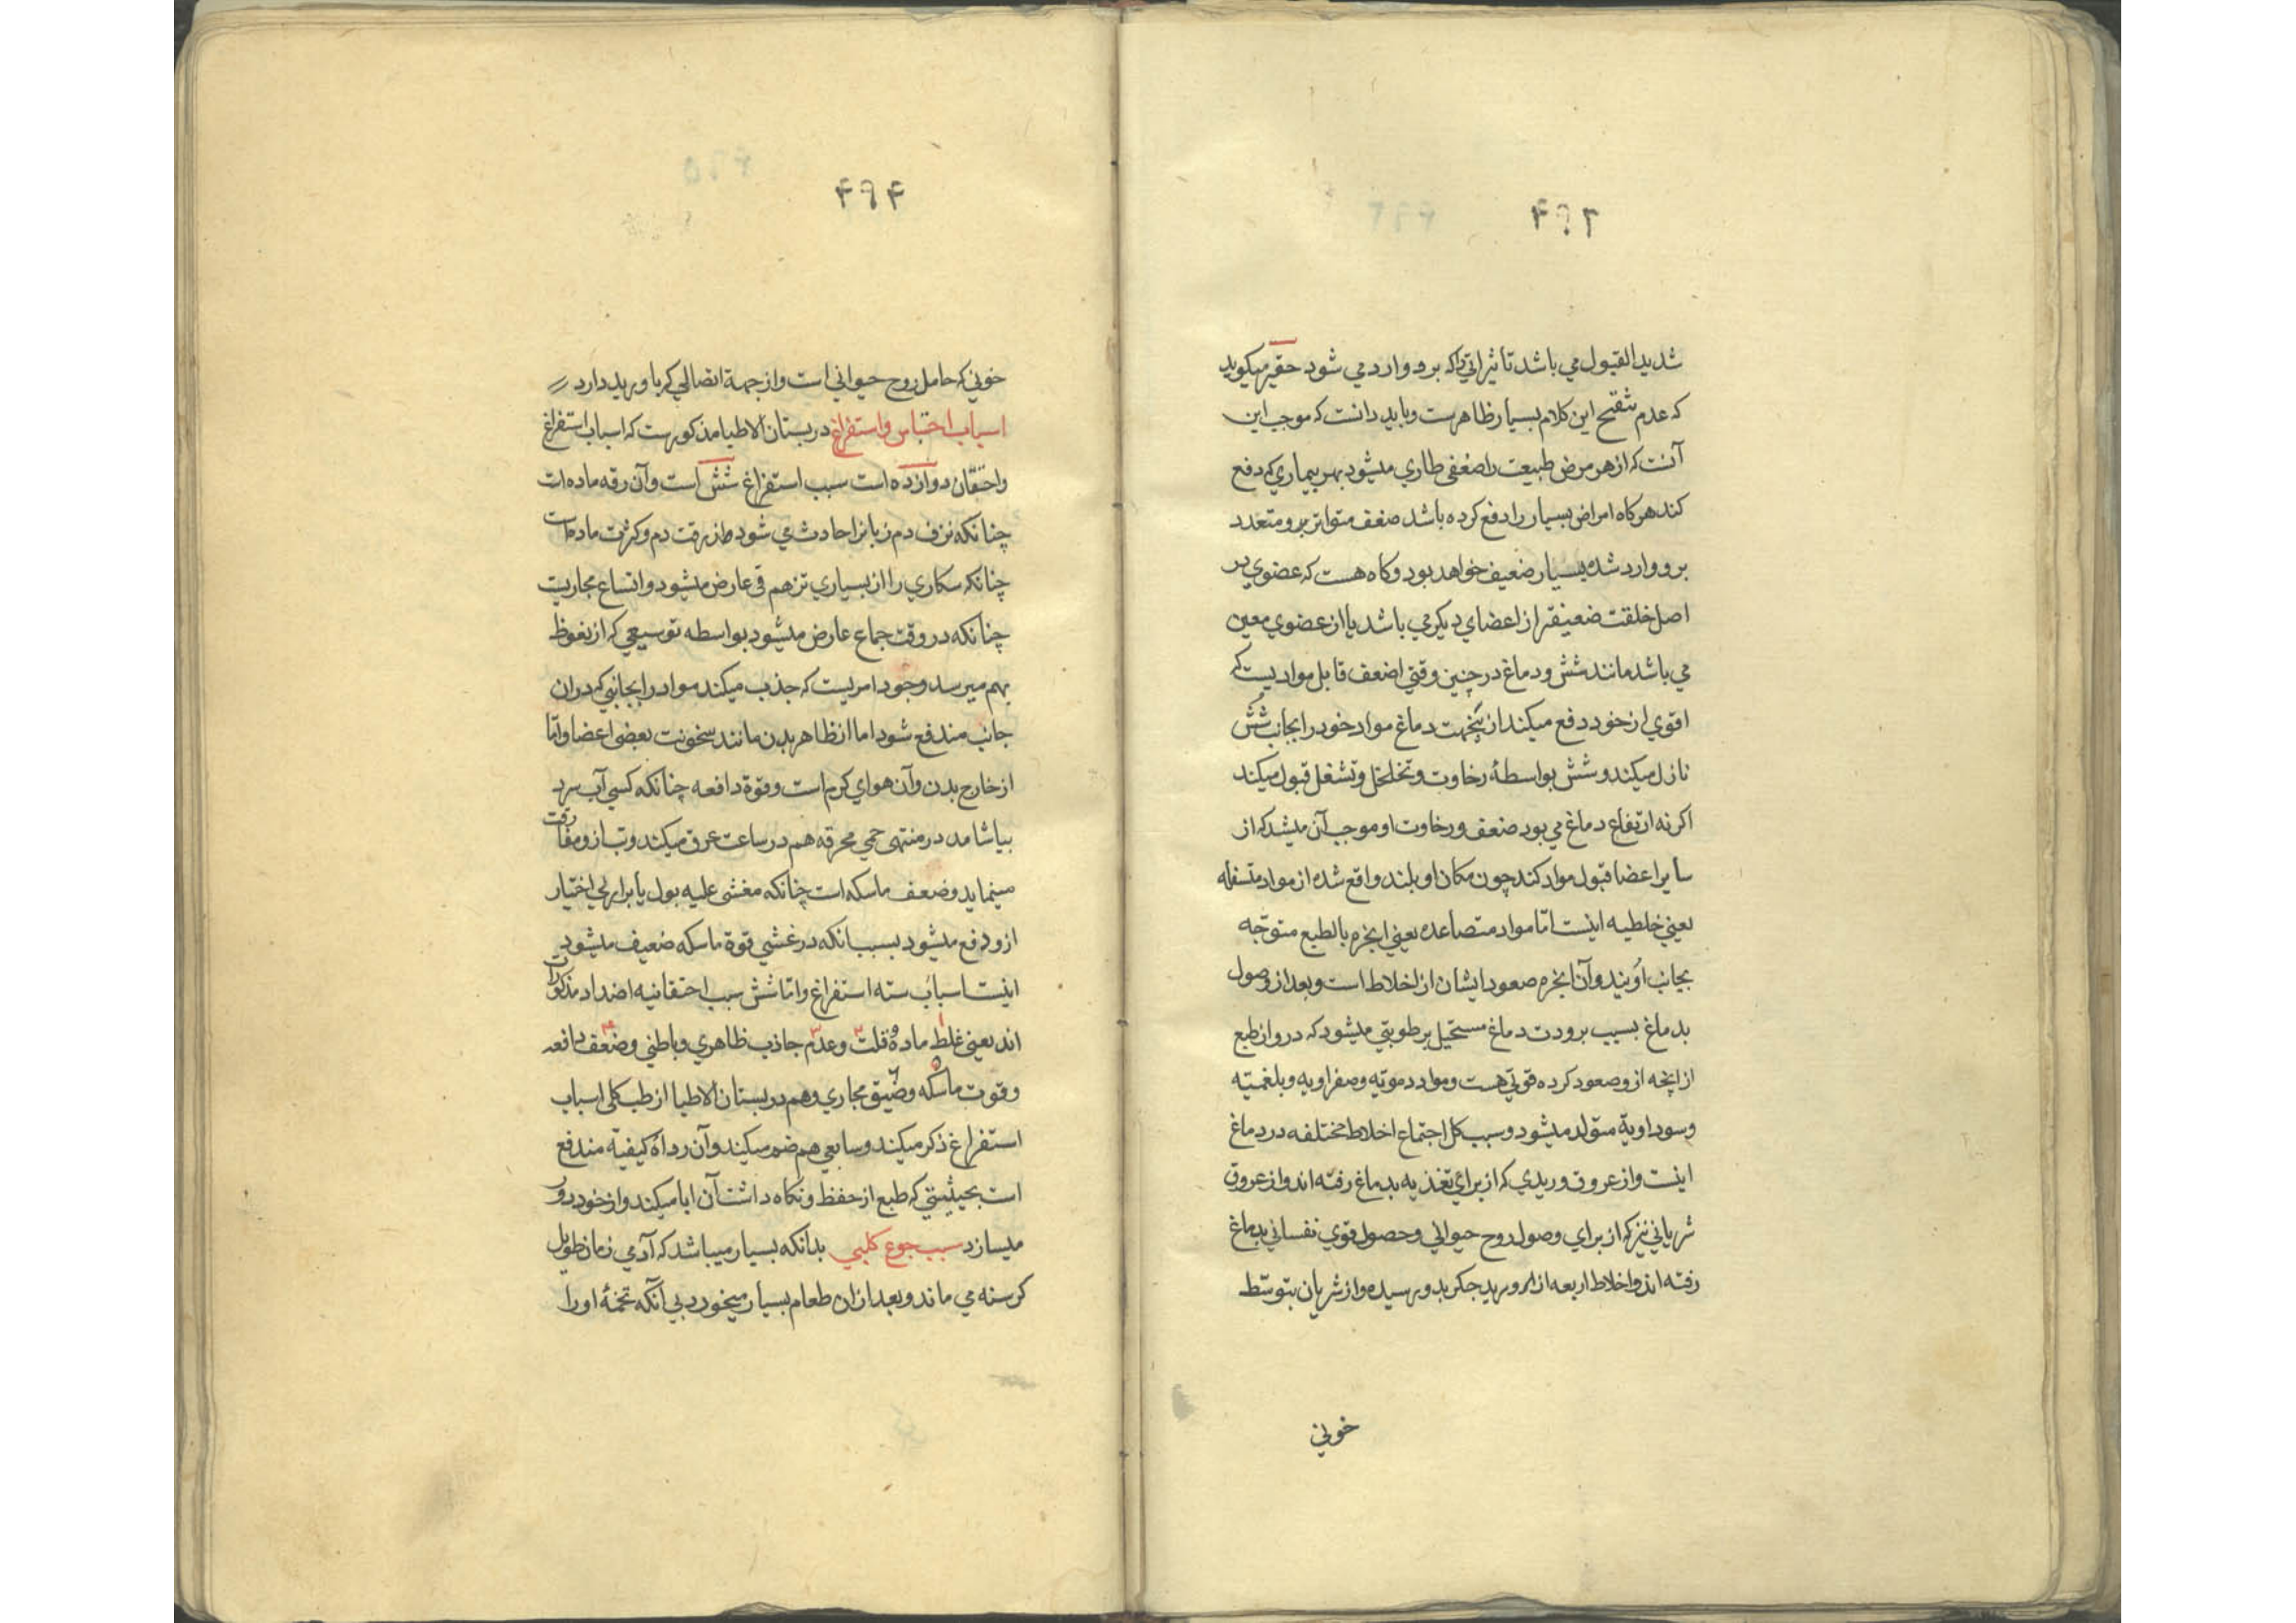 ۴۹۳
شدید القبول می باشد تاثیراتی را که برو وارد می شود حقیر میکوید
که عدم تنقح این کلام بسیار ظاهرست و باید دانست که موجب این
آنست که از هر مرض طبیعت را ضعفی طاری میشود بهر بیماری که دفع
کند هر کاه امراض بسیار را دفع کرده باشد ضعف متواتر برو و متعدد
برو وارد شده بسیار ضعیف خواهد بود و کاه هست که عضوی در
اصل خلقت ضعیفتر از اعضای دیکر می باشد یا از عضوی معین
می باشد مانند شش و دماغ در چنین وقتی اضعف قابل موادیست که
اقوی از خود دفع میکند ازینجهت دماغ مواد خود را بجانب شش
نازل میکند و شش بواسطهٔ رخاوت و تخلخل و تشغل قبول میکند
اکر نه ارتفاع دماغ می بود ضعف و رخاوت او موجب آن میشد که از
سایر اعضا قبول مواد کند چون مکان او بلند واقع شده از مواد متسفله
یعنی خلطیه اینست امّا مواد متصاعده یعنی ابخره بالطبع متوجّه
بجانب اویند و آن ابخره صعود ایشان از اخلاط است و بعد از وصول
بدماغ بسبب برودت دماغ مستحیل برطوبتی میشود که درو از طبع
از انچه ازو صعود کرده قوتی هست و مواد دمویّه و صفراویه و بلغمیّه
و سوداویة متولد میشود و سبب کل اجتماع اخلاط مختلفه در دماغ
اینست و از عروق وریدی که از برای تغذیه بدماغ رفته اند و از عروق
شریانی نیز که از برای وصول روح حیوانی و حصول قوی نفسانی بدماغ
رفته اند و اخلاط اربعه از ورید جکر بدو رسیده و از شریان بتوسّط
خونی
۴۹۴
خونی که حامل روح حیوانی است و از جهة اتصالی که با ورید دارد
اسباب احتباس و استفراغ در بستان الاطبا مذکورست که اسباب استفراغ
و احتقان دوازده است سبب استفراغ شش است و آن رقه ماده است
چنانکه نزف دم زنانرا حادث می شود از رقت دم و کثرت ماده است
چنانکه سکاری را از بسیاری تزهم قی عارض میشود و اتساع مجاریست
چنانکه در وقت جماع عارض میشود بواسطه توسیعی که از نعوظ
بهم میرسد وجود امریست که جذب میکند مواد را بجانبی که دران
جانب مندفع شود اما از ظاهر بدن مانند سخونت بعضی اعضا و امّا
از خارج بدن و آن هوای کرم است و قوة دافعه چنانکه کسی آب سرد
بیاشامد در منتهی حمی محرقه هم در ساعت عرق میکند و تب ازو مفارقت
مینماید و ضعف ماسکه است چنانکه مغشی علیه بول یا براز بی اختیار
ازو دفع میشود بسبب انکه در غشی قوة ماسکه ضعیف میشود
اینست اسباب سته استفراغ و امّا شش سبب احتقانیه اضداد مذکورات
اند یعنی غلظ ماده و قلت و عدم جاذب ظاهری و باطنی و ضعف دافعه
و قوت ماسکه و ضیق مجاری و هم در بستان الاطبا از طب کلی اسباب
استفراغ ذکر میکند و سابعی هم ضم میکند و آن رداءة کیفیة مندفع
است بحیثیتی که طبع از حفظ و نکاه داشت آن ابا میکند و از خود دور
میسازد سبب جوع کلبی بدانکه بسیار میباشد که آدمی زمان طویل
کرسنه می ماند و بعد ازان طعام بسیار میخورد بی آنکه تخمهٔ او را